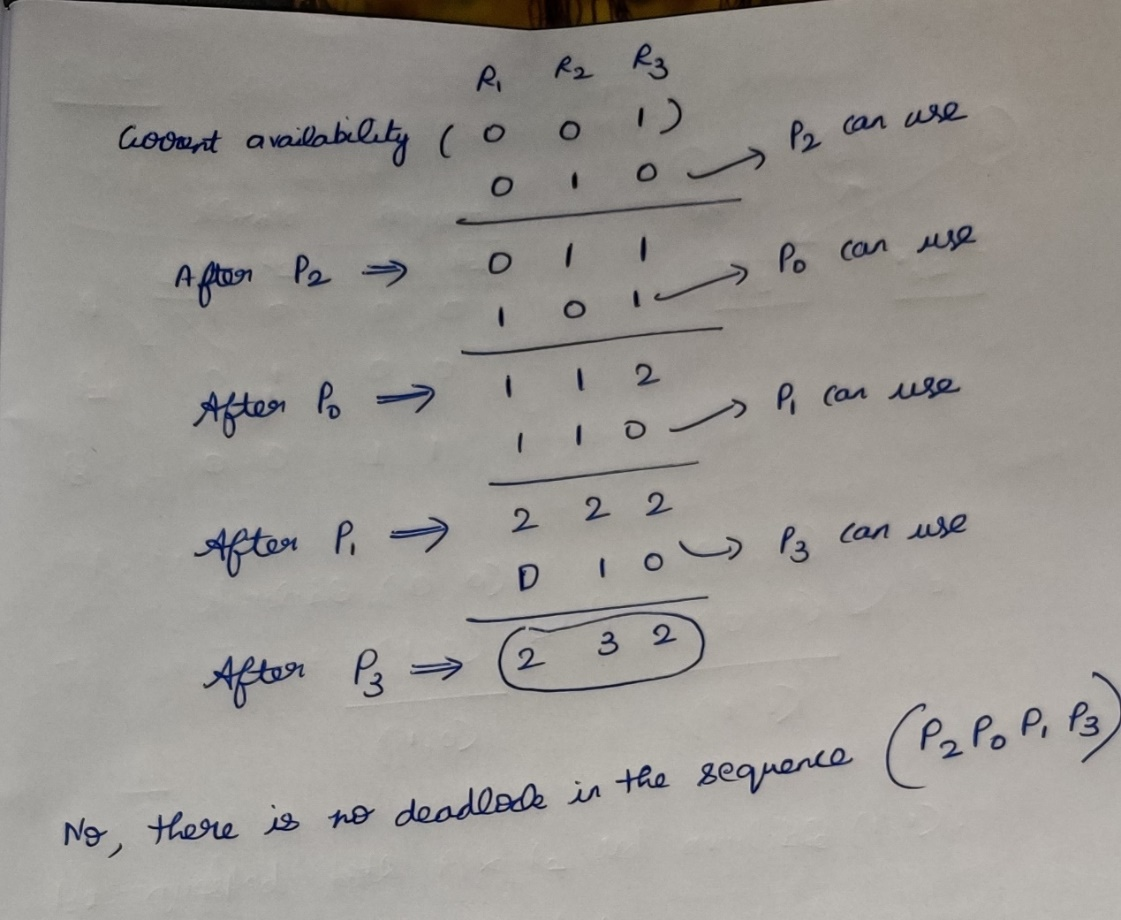 R₁ R₂ R₃
Current availability ( 0 0 1 )
0 1 0 → P₂ can use
After P₂ ⇒ 0 1 1
1 0 1 → P₀ can use
After P₀ ⇒ 1 1 2
1 1 0 → P₁ can use
After P₁ ⇒ 2 2 2
0 1 0 → P₃ can use
After P₃ ⇒ 2 3 2
No, there is no deadlock in the sequence (P₂ P₀ P₁ P₃)